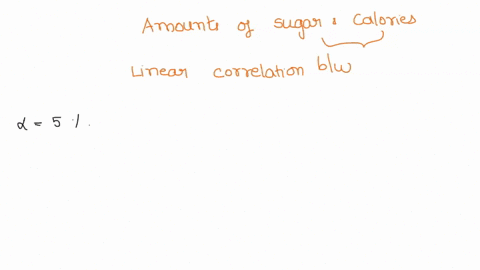 Amounts of sugar & calories
Linear correlation b/w
α = 5 %.